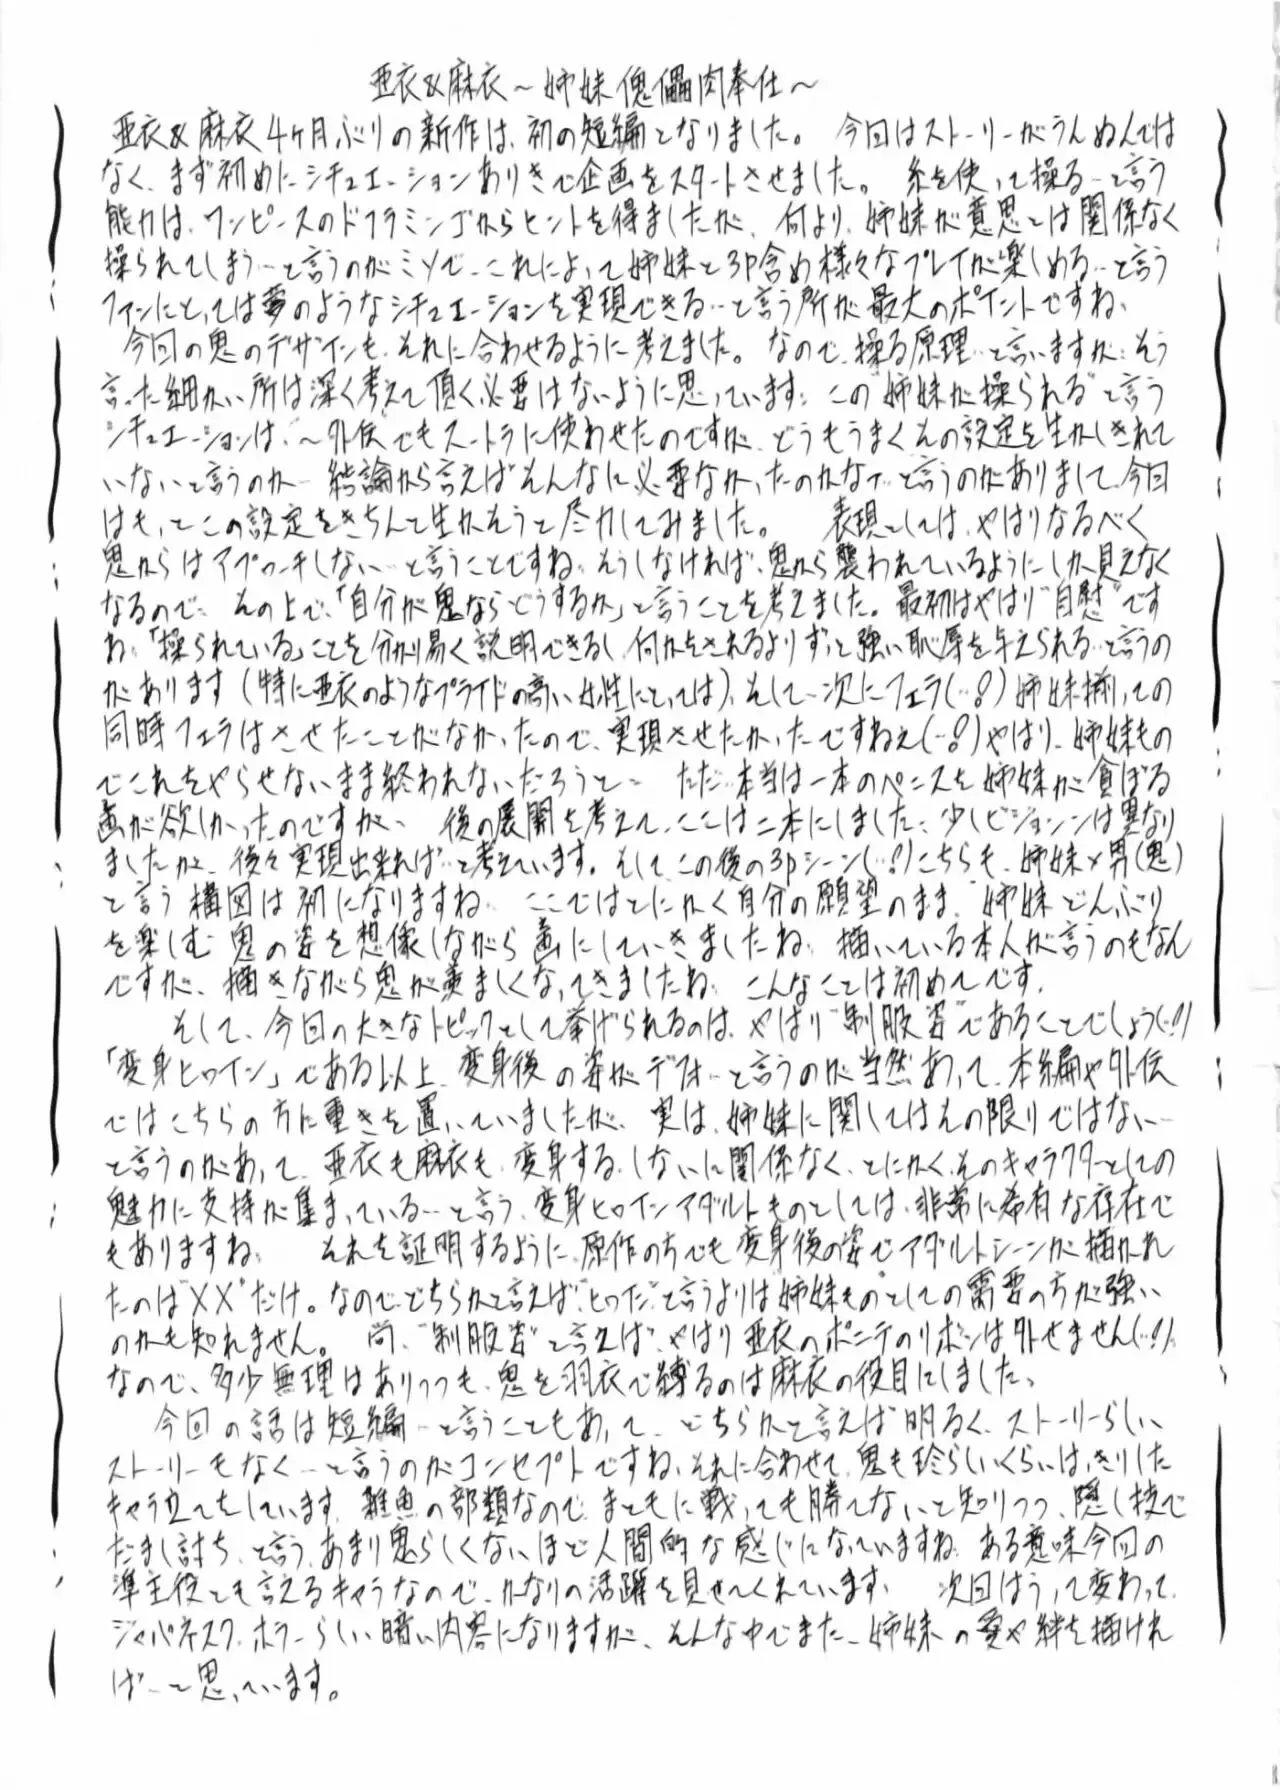 亜衣&麻衣～姉妹傀儡肉奉仕～
亜衣&麻衣4ケ月ぶりの新作は、初の短編となりました。 今回はストーリーがうんぬんでは
なく、まず初めにシチュエーションありきで企画をスタートさせました。 糸を使って操る…と言う
能力は、ワンピースのドフラミンゴからヒントを得ましたが、何より、姉妹が意思とは関係なく
操られてしまう…と言うのがミソで、これによって姉妹と3P含め様々なプレイが楽しめる…と言う
ファンにとっては夢のようなシチュエーションを実現できる…と言う所が最大のポイントですね。
今回の鬼のデザインも、それに合わせるように考えました。なので、操る原理…と言いますか、そう
言った細かい所は深く考えて頂く必要はないように思っています。この“姉妹が操られる”と言う
シチュエーションは、“～外伝”でもスートラに使わせたのですが、どうもうまくその設定を生かしきれて
いないと言うのか…結論から言えばそんなに必要なかったのかな…と言うのがありまして、今回
はもっとこの設定をきちんと生かそうと尽力してみました。 表現としては、やはりなるべく
鬼からはアプローチしない…と言うことですね。そうしなければ、鬼から襲われているようにしか見えなく
なるので。その上で、「自分が鬼ならどうするか」と言うことを考えました。最初はやはり“自慰”です
ね。「操られている」ことを分かり易く説明できるし、何かをされるよりずっと強い恥辱を与えられる…と言うの
があります(特に亜衣のようなプライドの高い女性にとっては)。そして次にフェラ(…!)姉妹揃っての
同時フェラはさせたことがなかったので、実現させたかったですねえ(…!)やはり、姉妹もの
でこれをやらせないまま終われないだろうと… ただ…本当は一本のペニスを姉妹が貪ぼる
画が欲しかったのですが、 後の展開を考えて、ここは二本にしました。少しビジョンンは異なり
ましたが、後々実現出来れば…と考えています。そしてこの後の3Pシーン(…!)こちらも、姉妹×男(鬼)
と言う構図は初になりますね。 ここではとにかく自分の願望のまま“姉妹どんぶり
を楽しむ鬼の姿を想像しながら画にしていきましたね。描いている本人が言うのもなん
ですが、描きながら鬼が羨ましくなってきましたね。こんなことは初めてです。
そして、今回の大きなトピックとして挙げられるのは、やはり“制服姿”であることでしょう(…!)
「変身ヒロイン」である以上、変身後の姿がデフォ…と言うのが当然あって、本編や外伝
ではこちらの方に重きを置いていましたが、実は、姉妹に関してはその限りではない…
と言うのがあって、亜衣も麻衣も、変身する、しないに関係なく、とにかく、そのキャラクターとしての
魅力に支持が集まっている…と言う、変身ヒロインアダルトものとしては、非常に希有な存在で
もありますね。 それを証明するように、原作の方でも変身後の姿でアダルトシーンが描かれ
たのは“XX”だけ。なので、どちらかと言えば、と言うよりは姉妹ものとしての需要の方が強い
のかも知れません。 尚、“制服姿”と言えば、やはり亜衣のポニテのリボンは外せません(…!)
なので、多少無理はありつつも、鬼を羽衣で縛るのは麻衣の役目にしました。
今回の話は短編…と言うこともあって、どちらかと言えば明るく、ストーリーらしい
ストーリーもなく…と言うのがコンセプトですね。それに合わせて、鬼も珍らしいくらいはっきりした
キャラ立てをしています。雑魚の部類なので、まともに戦っても勝てないと知りつつ、隠し技で
だまし討ち、と言う、あまり鬼らしくないほど人間的な感じになっていますね。ある意味今回の
準主役とも言えるキャラなので、かなりの活躍を見せてくれています。 次回はうって変わって、
ジャパネスク、ホラーらしい暗い内容になりますが、そんな中でまた、姉妹の愛や絆を描けれ
ば…と思っています。